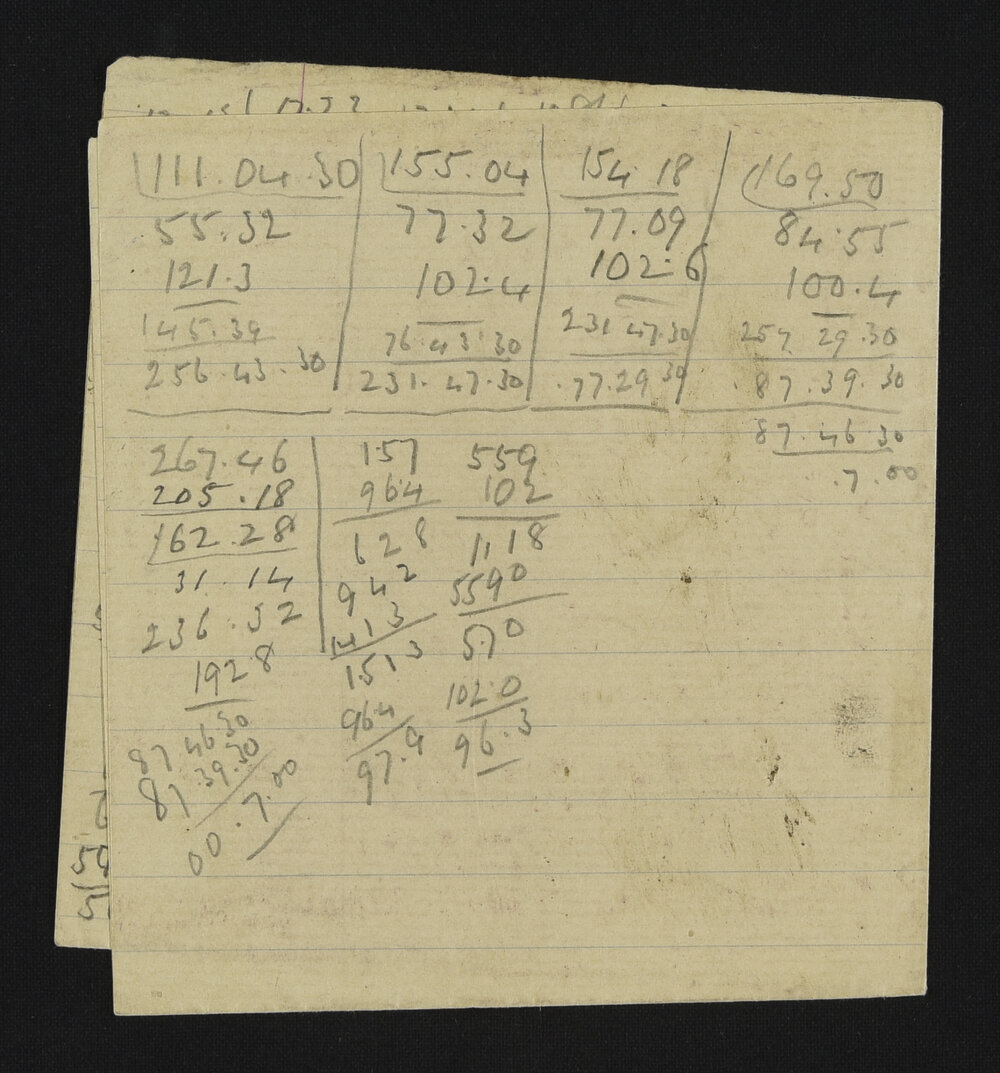 111.04.30
55.32
121.3
145.39
256.43.30
155.04
77.32
102.4
76.43.30
231.47.30
154.18
77.09
102.6
231 47.30
.77.29 30
169.50
84.55
100.4
257 29.30
87.39.30
87.46.30
.7.00
267.46
205.18
162.28
31.14
236.32
192.8
87 46 30
87 39.30
00.7.00
157
964
628
942
1413
1513
964
97.9
559
102
1118
5590
570
102.0
96.3